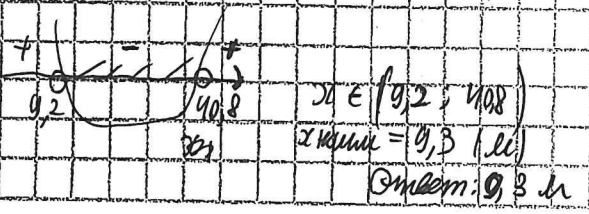 + - +
9,2 40,8
x ∈ (9,2 ; 40,8)
x наим = 9,3 (м)
Ответ: 9,3 м